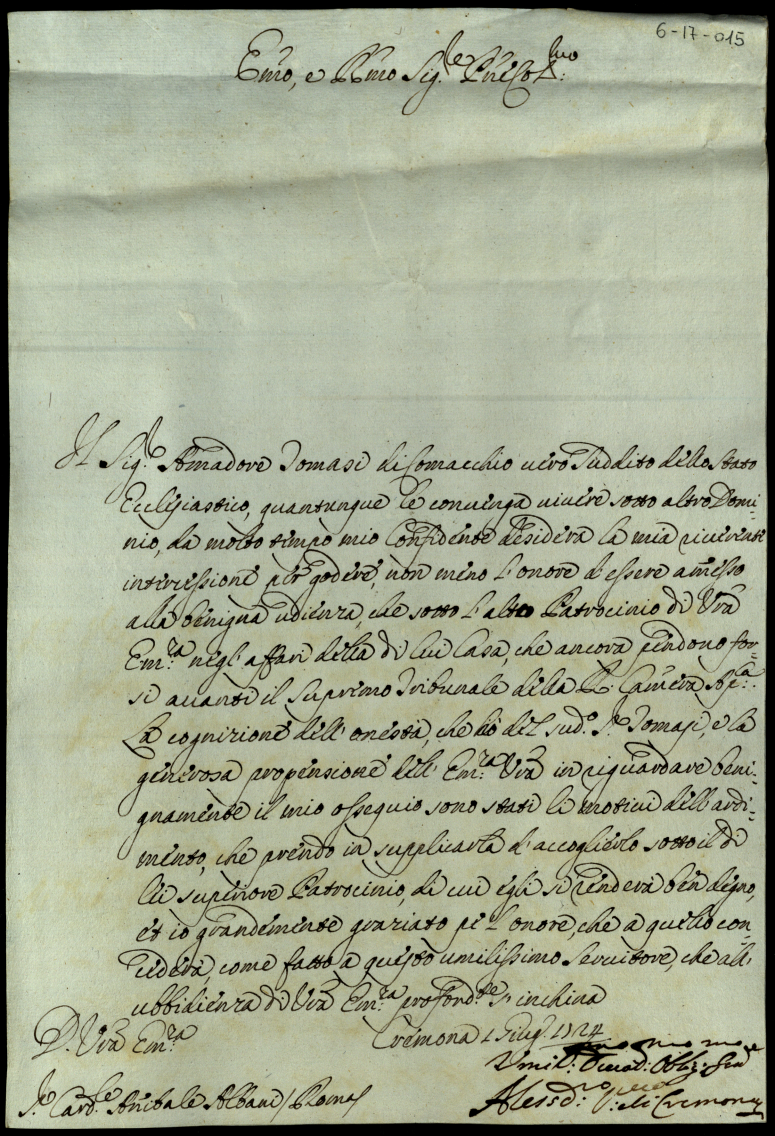 6-17-015
Emo, e Rmo Sig.re Pne Colmo
Il Sig.r Amadore Tomasi di Comacchio vero suddito dello Stato
Ecclesiastico, quantunque le convenga vivere sotto altro Domi-
nio, da molto tempo mio Confidente desidera la mia riverente
intercessione per godere, non meno l'onore d'essere amesso
alla benigna udienza, che sotto l'alto Patrocinio di Vra
Em.za negl'affari della di lui Casa, che ancora pendono for-
si avanti il supremo Tribunale della R. Camera Ap.ca.
La cognizione dell'onestà, che hò del sud.o S.r Tomasi, e la
generosa propensione dell'Em.za Vra in riguardare beni-
gnamente il mio ossequio sono stati li motivi dell'ardi-
mento, che prendo in supplicarla d'accoglierlo sotto il di
lei superiore Patrocinio, di cui egli si renderà ben degno,
et io grandemente graziato pe l'onore, che a quello con-
cederà, come fatto a questo umilissimo servitore, che all'
ubbidienza di Vra Em.za profond.te s'inchina
D. Vra Em.za
Cremona 1 Giug. 1724
Umil.mo Devot.mo Obblig.mo Ser.e
S.r Card.le Anibale Albani / Roma /
Aless.dro V. di Cremona